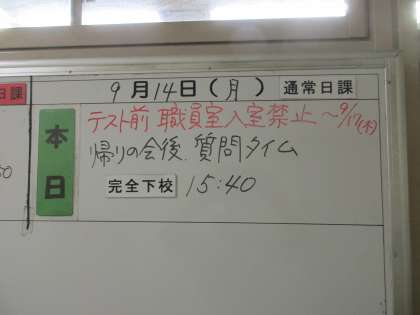 9月14日(月) 通常日課
日課
本日
テスト前 職員室入室禁止 ~9/17(木)
帰りの会後、質問タイム
完全下校 15:40
50